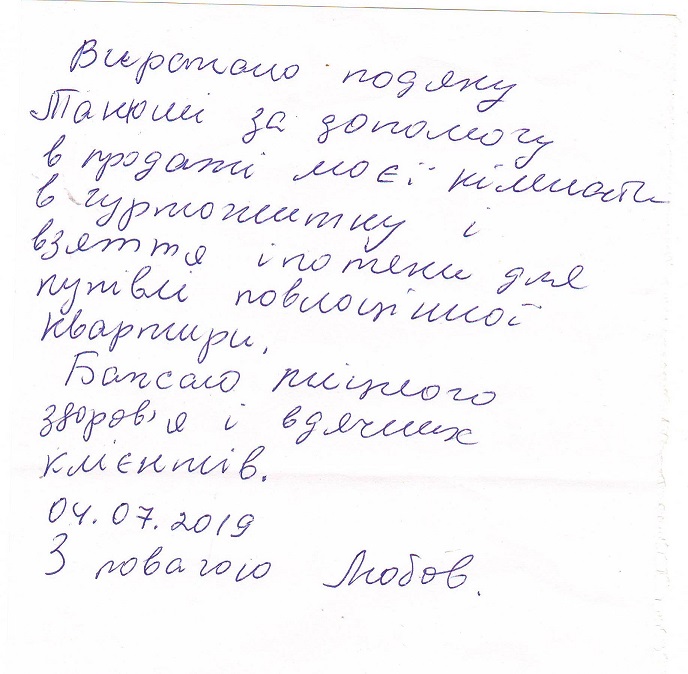 Виражаю подяку
Танюші за допомогу
в продажі моєї кімнати
в гуртожитку і
взяття іпотеки для
купівлі повноцінної
квартири.
Бажаю міцного
здоров'я і вдячних
клієнтів.
04.07.2019
З повагою Любов.